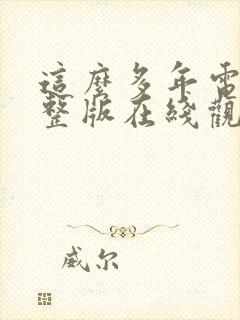 這麼多年電
整版在綫觀
威尔